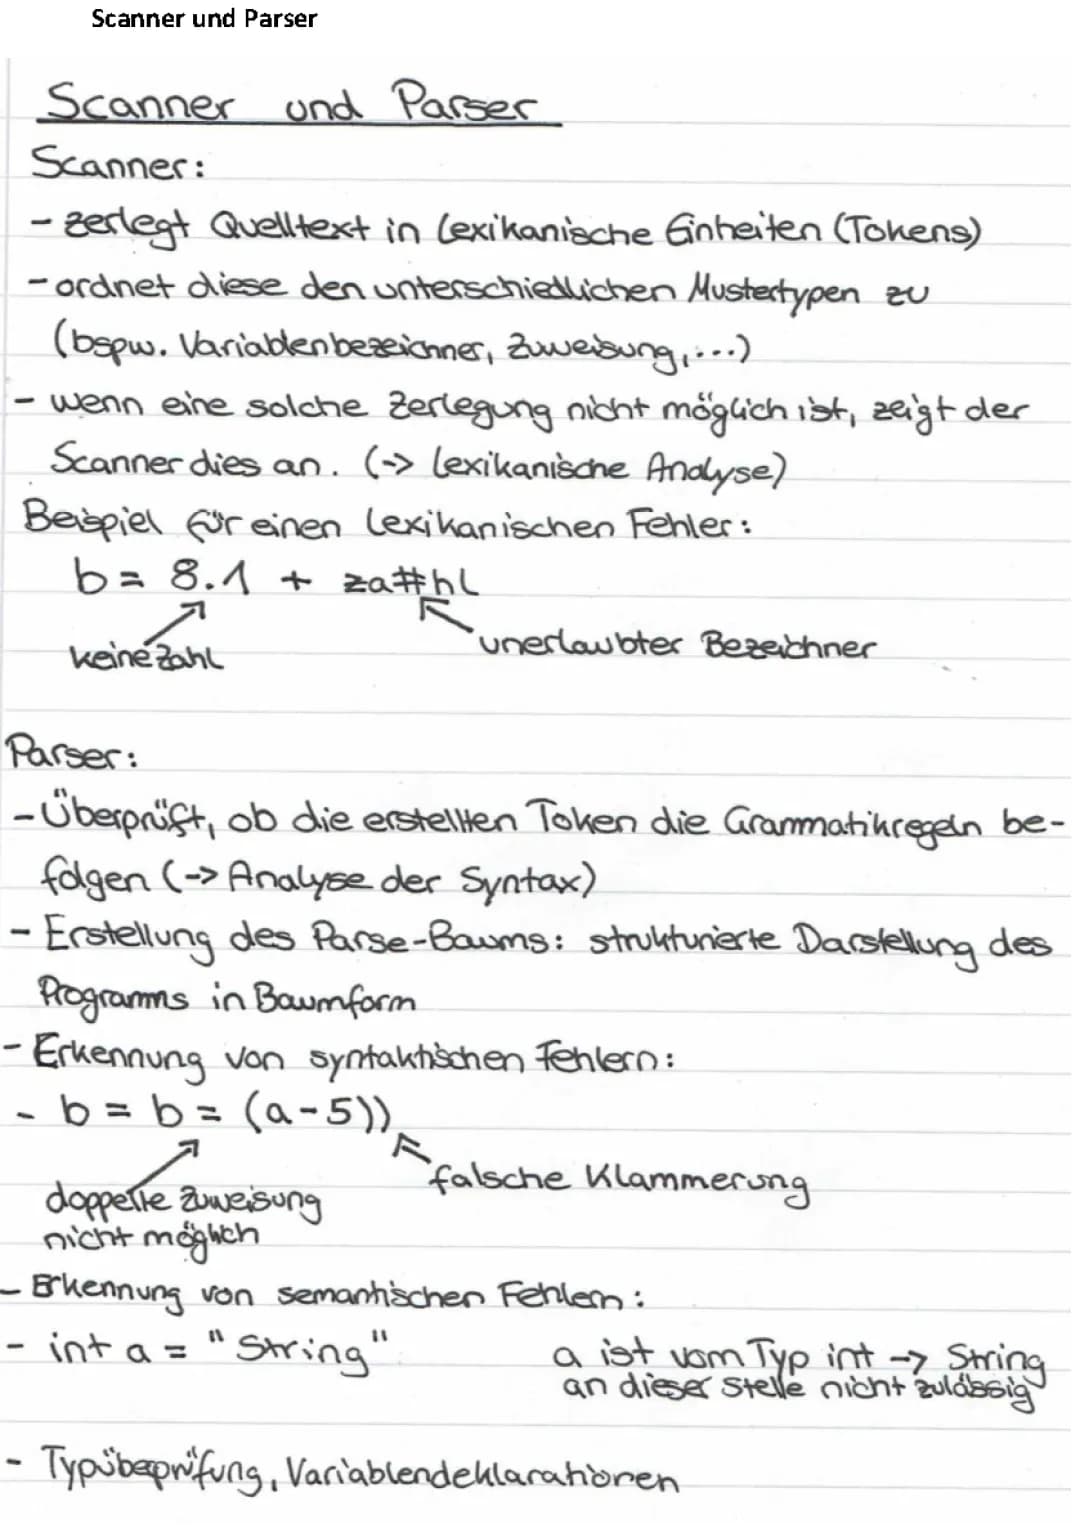 Scanner und Parser
Scanner und Parser
Scanner:
- zerlegt Quelltext in lexikanische Einheiten (Tokens)
- ordnet diese den unterschiedlichen Mustertypen zu
(bspw. Variablenbezeichner, Zuweisung,...)
- wenn eine solche Zerlegung nicht möglich ist, zeigt der
Scanner dies an. (-> lexikanische Analyse)
Beispiel für einen lexikanischen Fehler:
b = 8.1 + za#hl
keine Zahl
unerlaubter Bezeichner
Parser:
- Überprüft, ob die erstellten Token die Grammatikregeln be-
folgen (-> Analyse der Syntax)
- Erstellung des Parse-Baums: strukturierte Darstellung des
Programms in Baumform
- Erkennung von syntaktischen Fehlern:
- b = b = (a-5))
falsche Klammerung
doppelte Zuweisung
nicht möglich
- Erkennung von semantischen Fehlern:
- int a = "String" a ist vom Typ int -> String
an dieser Stelle nicht zulässig
- Typübeprüfung, Variablendeklarationen